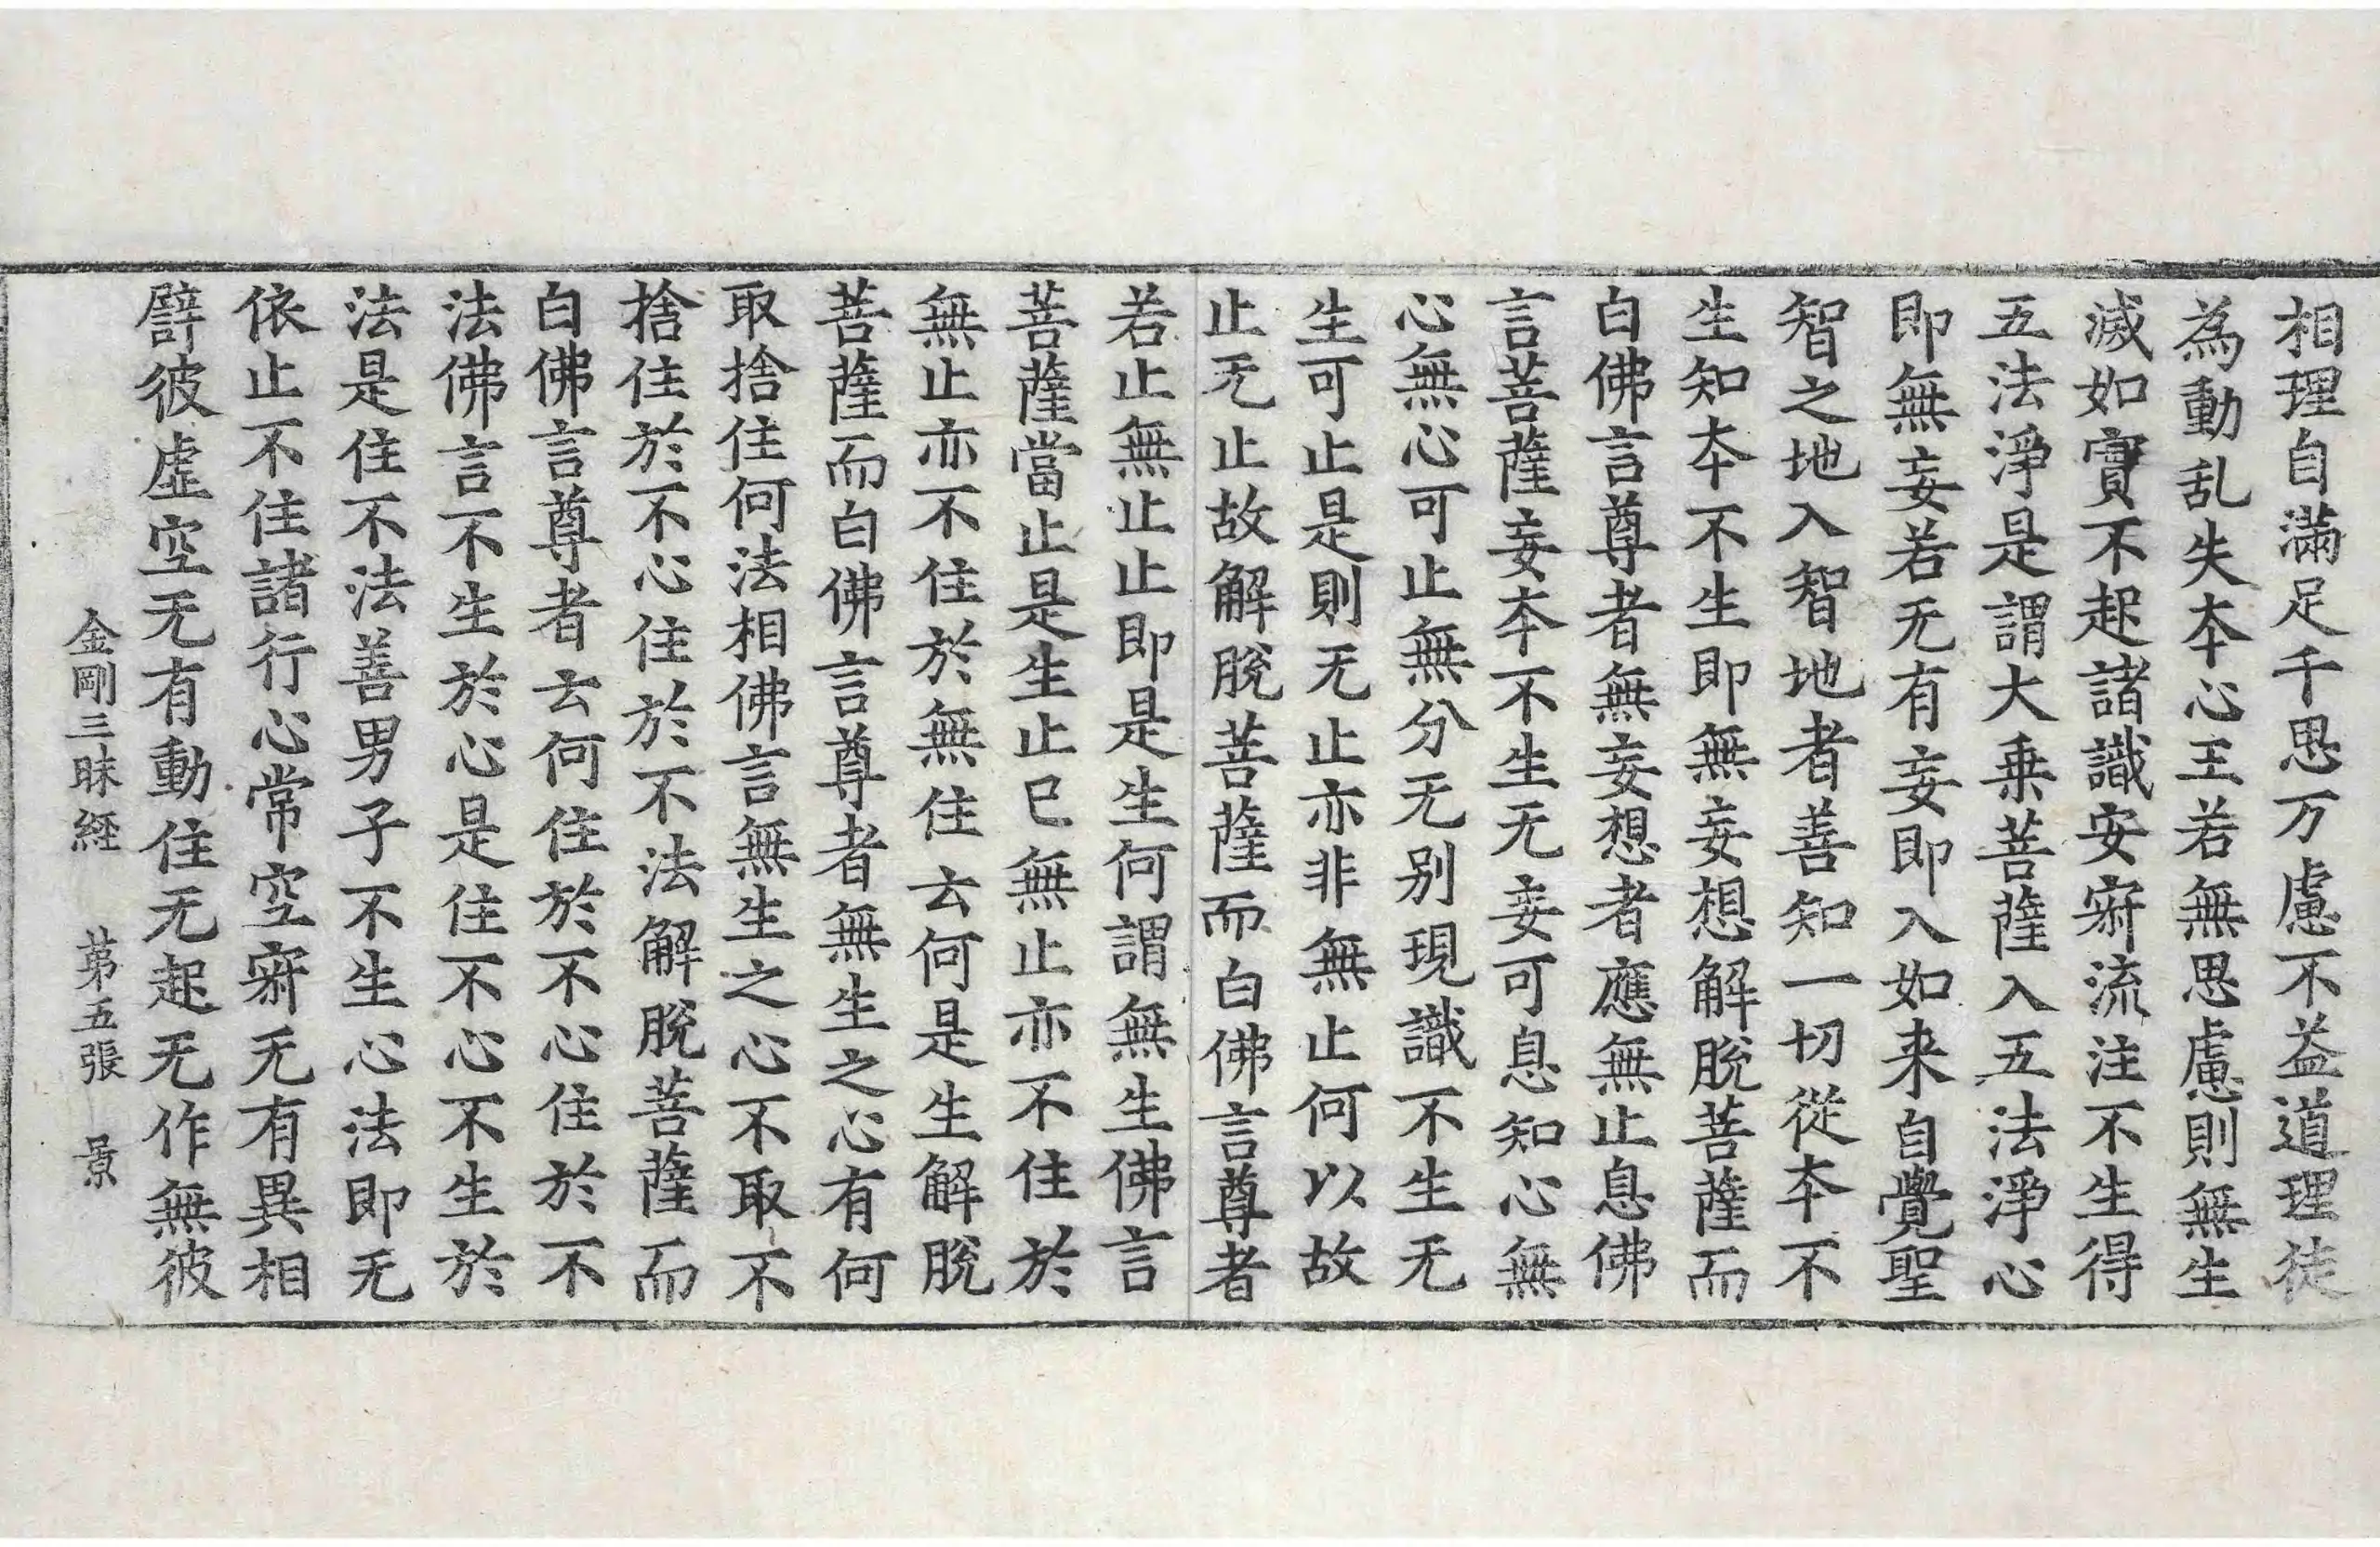 相理自滿足千思万慮不益道理徒
為動乱失夲心王若無思慮則無生
滅如實不起諸識安㝛流注不生得
五法淨是謂大乗菩薩入五法淨心
即無妄若无有妄即入如来自覺聖
智之地入智地者善知一切從夲不
生知夲不生即無妄想解脫菩薩而
白佛言尊者無妄想者應無止息佛
言菩薩妄夲不生无妄可息知心無
心無心可止無分无别現識不生无
生可止是則无止亦非無止何以故
止无止故解脫菩薩而白佛言尊者
若止無止止即是生何謂無生佛言
菩薩當止是生止已無止亦不住於
無止亦不住於無住云何是生解脫
菩薩而白佛言尊者無生之心有何
取捨住何法相佛言無生之心不取不
捨住於不心住於不法解脫菩薩而
白佛言尊者云何住於不心住於不
法佛言不生於心是住不心不生於
法是住不法善男子不生心法即无
依止不住諸行心常空㝛无有異相
譬彼虛空无有動住无起无作無彼
金剛三昧経 苐五張 景